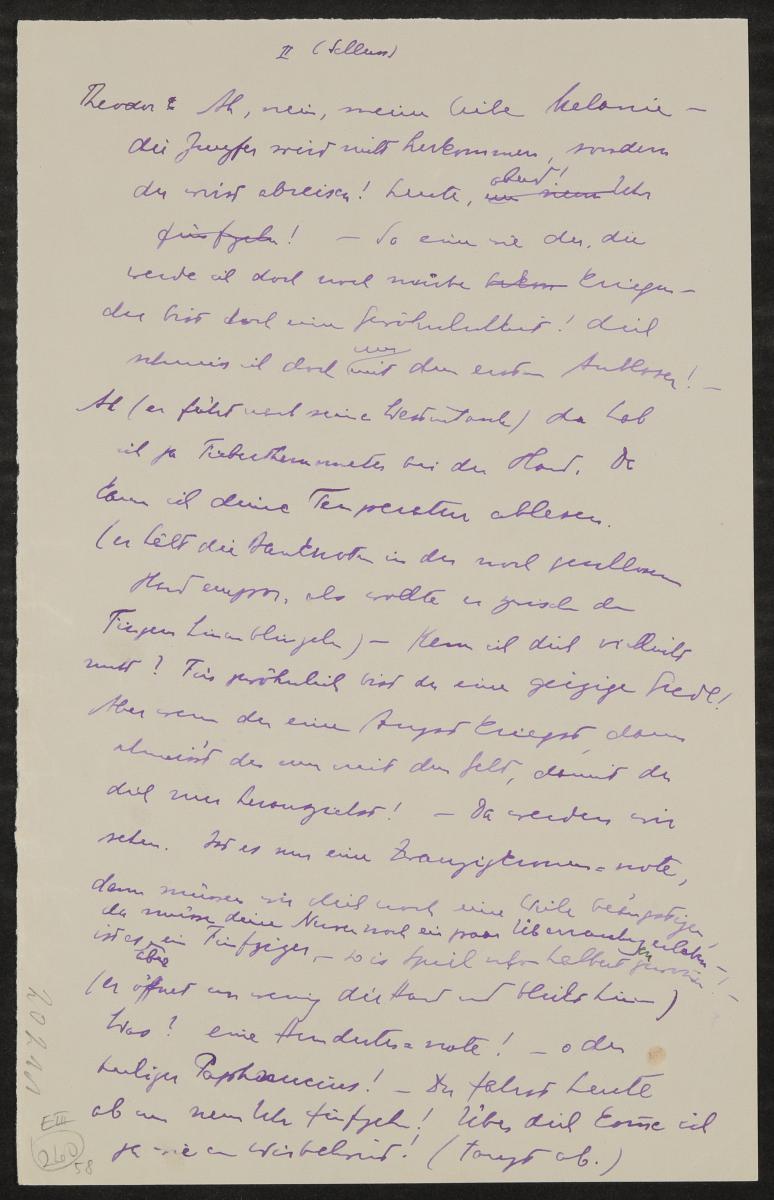 II (Schluss)
Theodor: Ah, nein, meine liebe Melanie –
die Jungfer wird nicht herkommen, sondern
du wirst abreisen! heute, abend! um neun Uhr
fünfzehn! – So eine wie du, die
werde ich doch noch mürbe bekom kriegen –
du bist doch eine Gewöhnlichkeit! dich
schmeiss ich doch um mit dem ersten
Ah (er fährt nach seiner Westentasche) da hab
ich ja Fieberthermometer bei der Hand. Da
kann ich deine Temperatur ablesen.
(er hält die Banknoten in der noch geschlossenen
Hand empor, als wollte er zwischen den
Fingern hineinblinzeln) – Kenn ich dich vielleicht
nicht? Für gewöhnlich bist du eine geizige Gredl!
Aber wenn du eine Angst kriegst, dann
schmeisst du nur mit dem Geld, damit du
dich nur herausziehst! – Da werden wir
sehen. Ist es nur eine Zwanzigkronen=note,
dann müssen wir dich noch eine Weile beängstigen,
da müssen deine Nerven noch ein paar Überraschungen erleben –
ist es aber ein Fünfziger, – so is Spiel schon halbert gewonnen! –
(er öffnet ein wenig die Hand und blickt hinein)
Was? eine Hunderter=note! – o du
heiliger Paphnucius! – Du fahrst heute
ab um neun Uhr fünfzehn! Über dich komme ich
ja wie ein Wirbelwind! (tanzt ab.)
E III
260
58